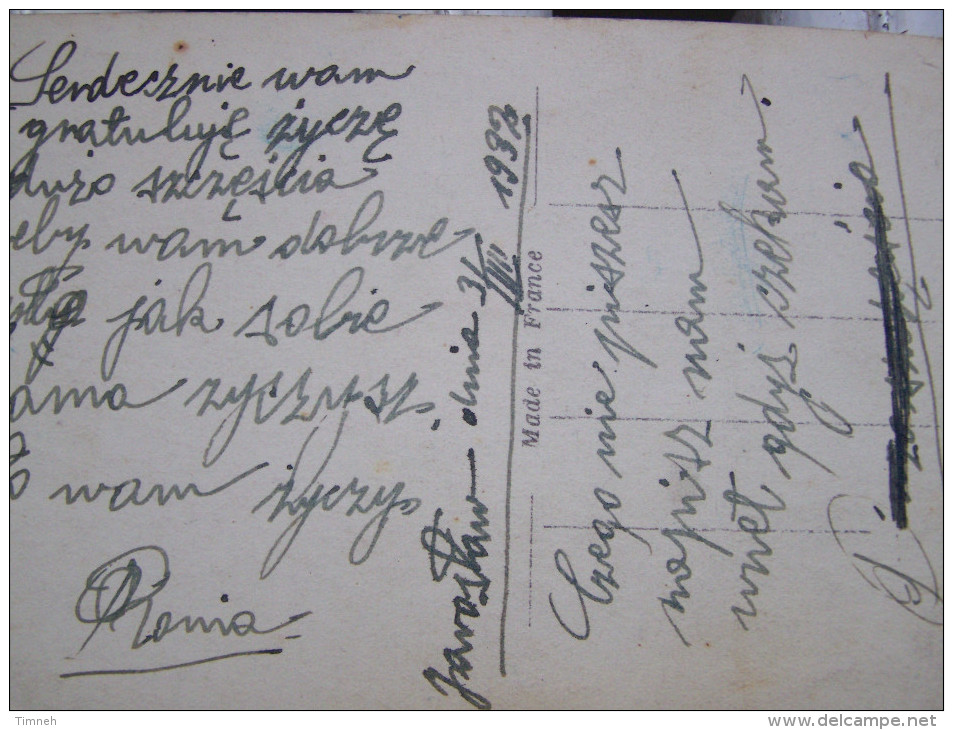 Serdecznie wam
gratuluję życzę
dużo szczęścia
eby wam dobrze
jak sobie
ama życzysz.
wam życzy.
Romia
Jarosław dnia 31/III 1932
Made in France
Czego nie piszesz
napisz nam
wnet gdyż czekam.
Timneh
www.delcampe.net